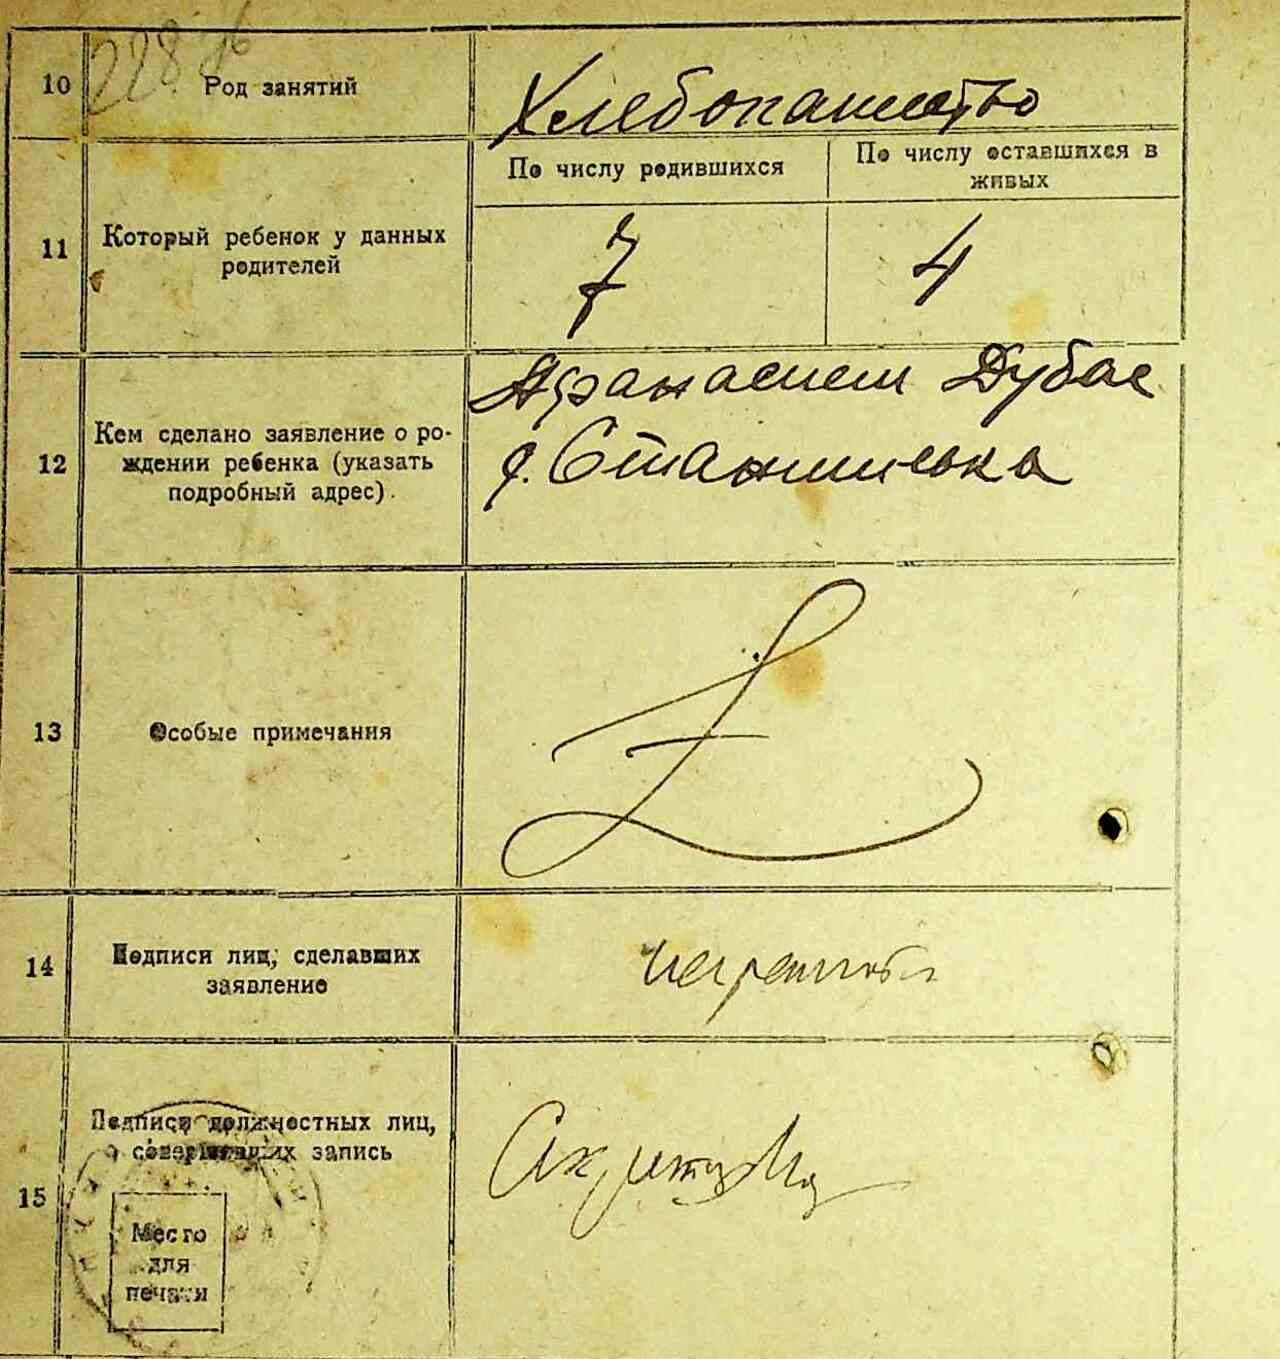 10
Род занятий
Хлебопашество
11
Который ребенок у данных
родителей
По числу родившихся
По числу оставшихся в
живых
7
4
12
Кем сделано заявление о ро-
ждении ребенка (указать
подробный адрес).
Афанасием Дубас
13
Особые примечания
14
Подписи лиц, сделавших
заявление
неграмотн
15
Подписи должностных лиц,
совершивших запись
Место
для
печати